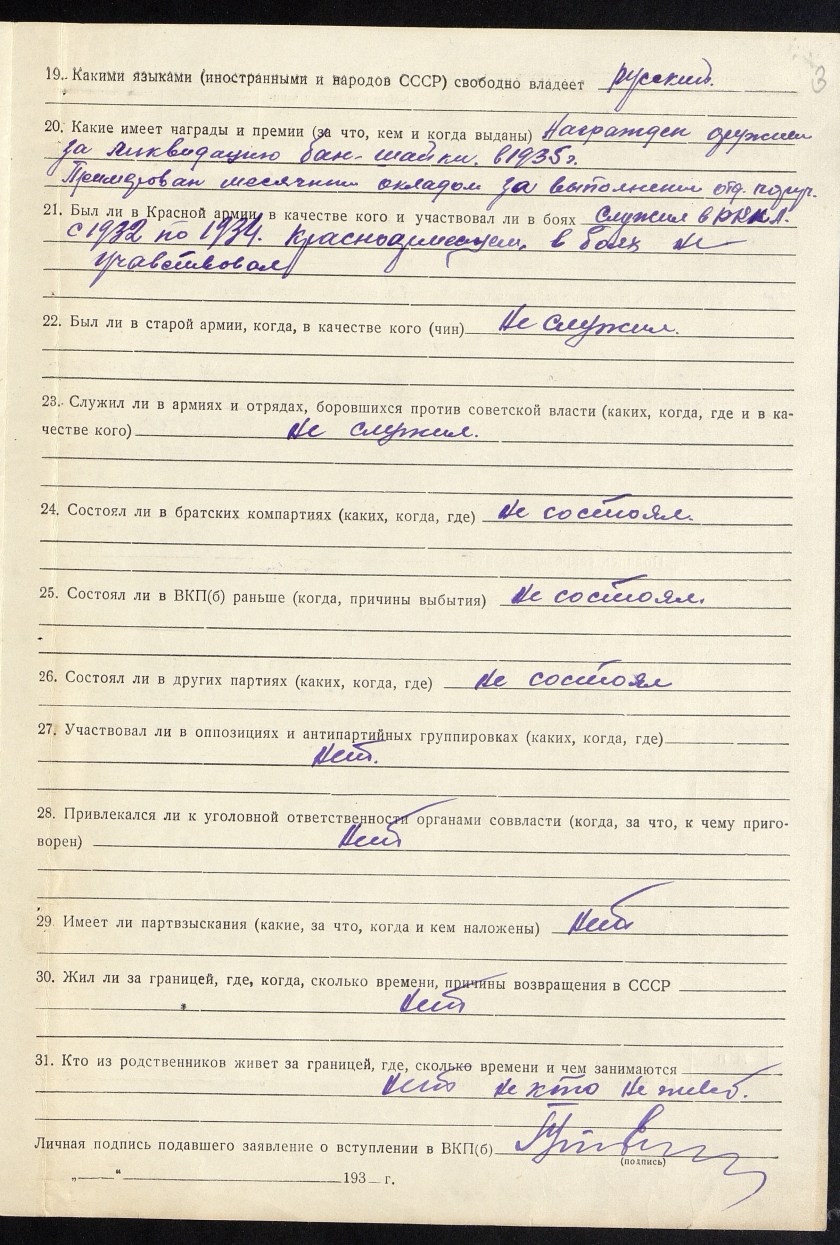 3
19. Какими языками (иностранными и народов СССР) свободно владеет русский.
20. Какие имеет награды и премии (за что, кем и когда выданы) Награжден оружием
за ликвидацию бан-шайки. в 1935 г.
Премирован месячным окладом за выполнении отд. поруч.
21. Был ли в Красной армии, в качестве кого и участвовал ли в боях служил в РККА.
с 1932 по 1934. Красноармейцем, в боях не
учавствовал
22. Был ли в старой армии, когда, в качестве кого (чин) Не служил.
23. Служил ли в армиях и отрядах, боровшихся против советской власти (каких, когда, где и в ка-
честве кого) Не служил.
24. Состоял ли в братских компартиях (каких, когда, где) Не состоял.
25. Состоял ли в ВКП(б) раньше (когда, причины выбытия) Не состоял.
26. Состоял ли в других партиях (каких, когда, где) Не состоял
27. Участвовал ли в оппозициях и антипартийных группировках (каких, когда, где)
Нет.
28. Привлекался ли к уголовной ответственности органами соввласти (когда, за что, к чему приго-
ворен) Нет
29. Имеет ли партвзыскания (какие, за что, когда и кем наложены) Нет
30. Жил ли за границей, где, когда, сколько времени, причины возвращения в СССР
Нет
31. Кто из родственников живет за границей, где, сколько времени и чем занимаются
Нет Не кто Не живет.
Личная подпись подавшего заявление о вступлении в ВКП(б)
(подпись)
„ “ 193 г.